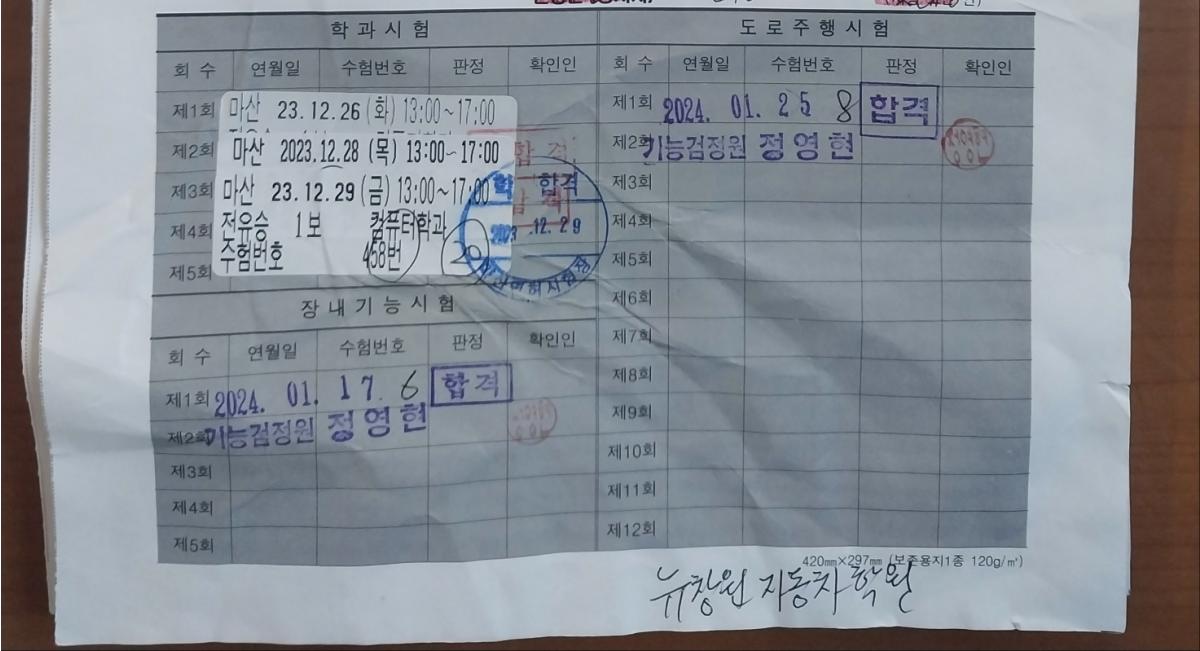 학 과 시 험
회 수 연월일 수험번호 판정 확인인
제1회 마산 23.12.26 (화) 13:00~17:00
제2회 마산 2023.12.28 (목) 13:00~17:00 합 격
제3회 마산 23.12.29 (금) 13:00~17:00 학 합격
제4회 전유승 1보 컴퓨터학과 2023 .12.29
제5회 수험번호 458번 20
장 내 기 능 시 험
회 수 연월일 수험번호 판정 확인인
제1회 2024. 01. 17. 6 합 격
제2회 기능검정원 정영현
제3회
제4회
제5회
도 로 주 행 시 험
회 수 연월일 수험번호 판정 확인인
제1회 2024. 01. 25 8 합격
제2회 기능검정원 정영현
제3회
제4회
제5회
제6회
제7회
제8회
제9회
제10회
제11회
제12회
420㎜×297㎜ (보존용지1종 120g/㎡)
뉴창원 자동차 학원